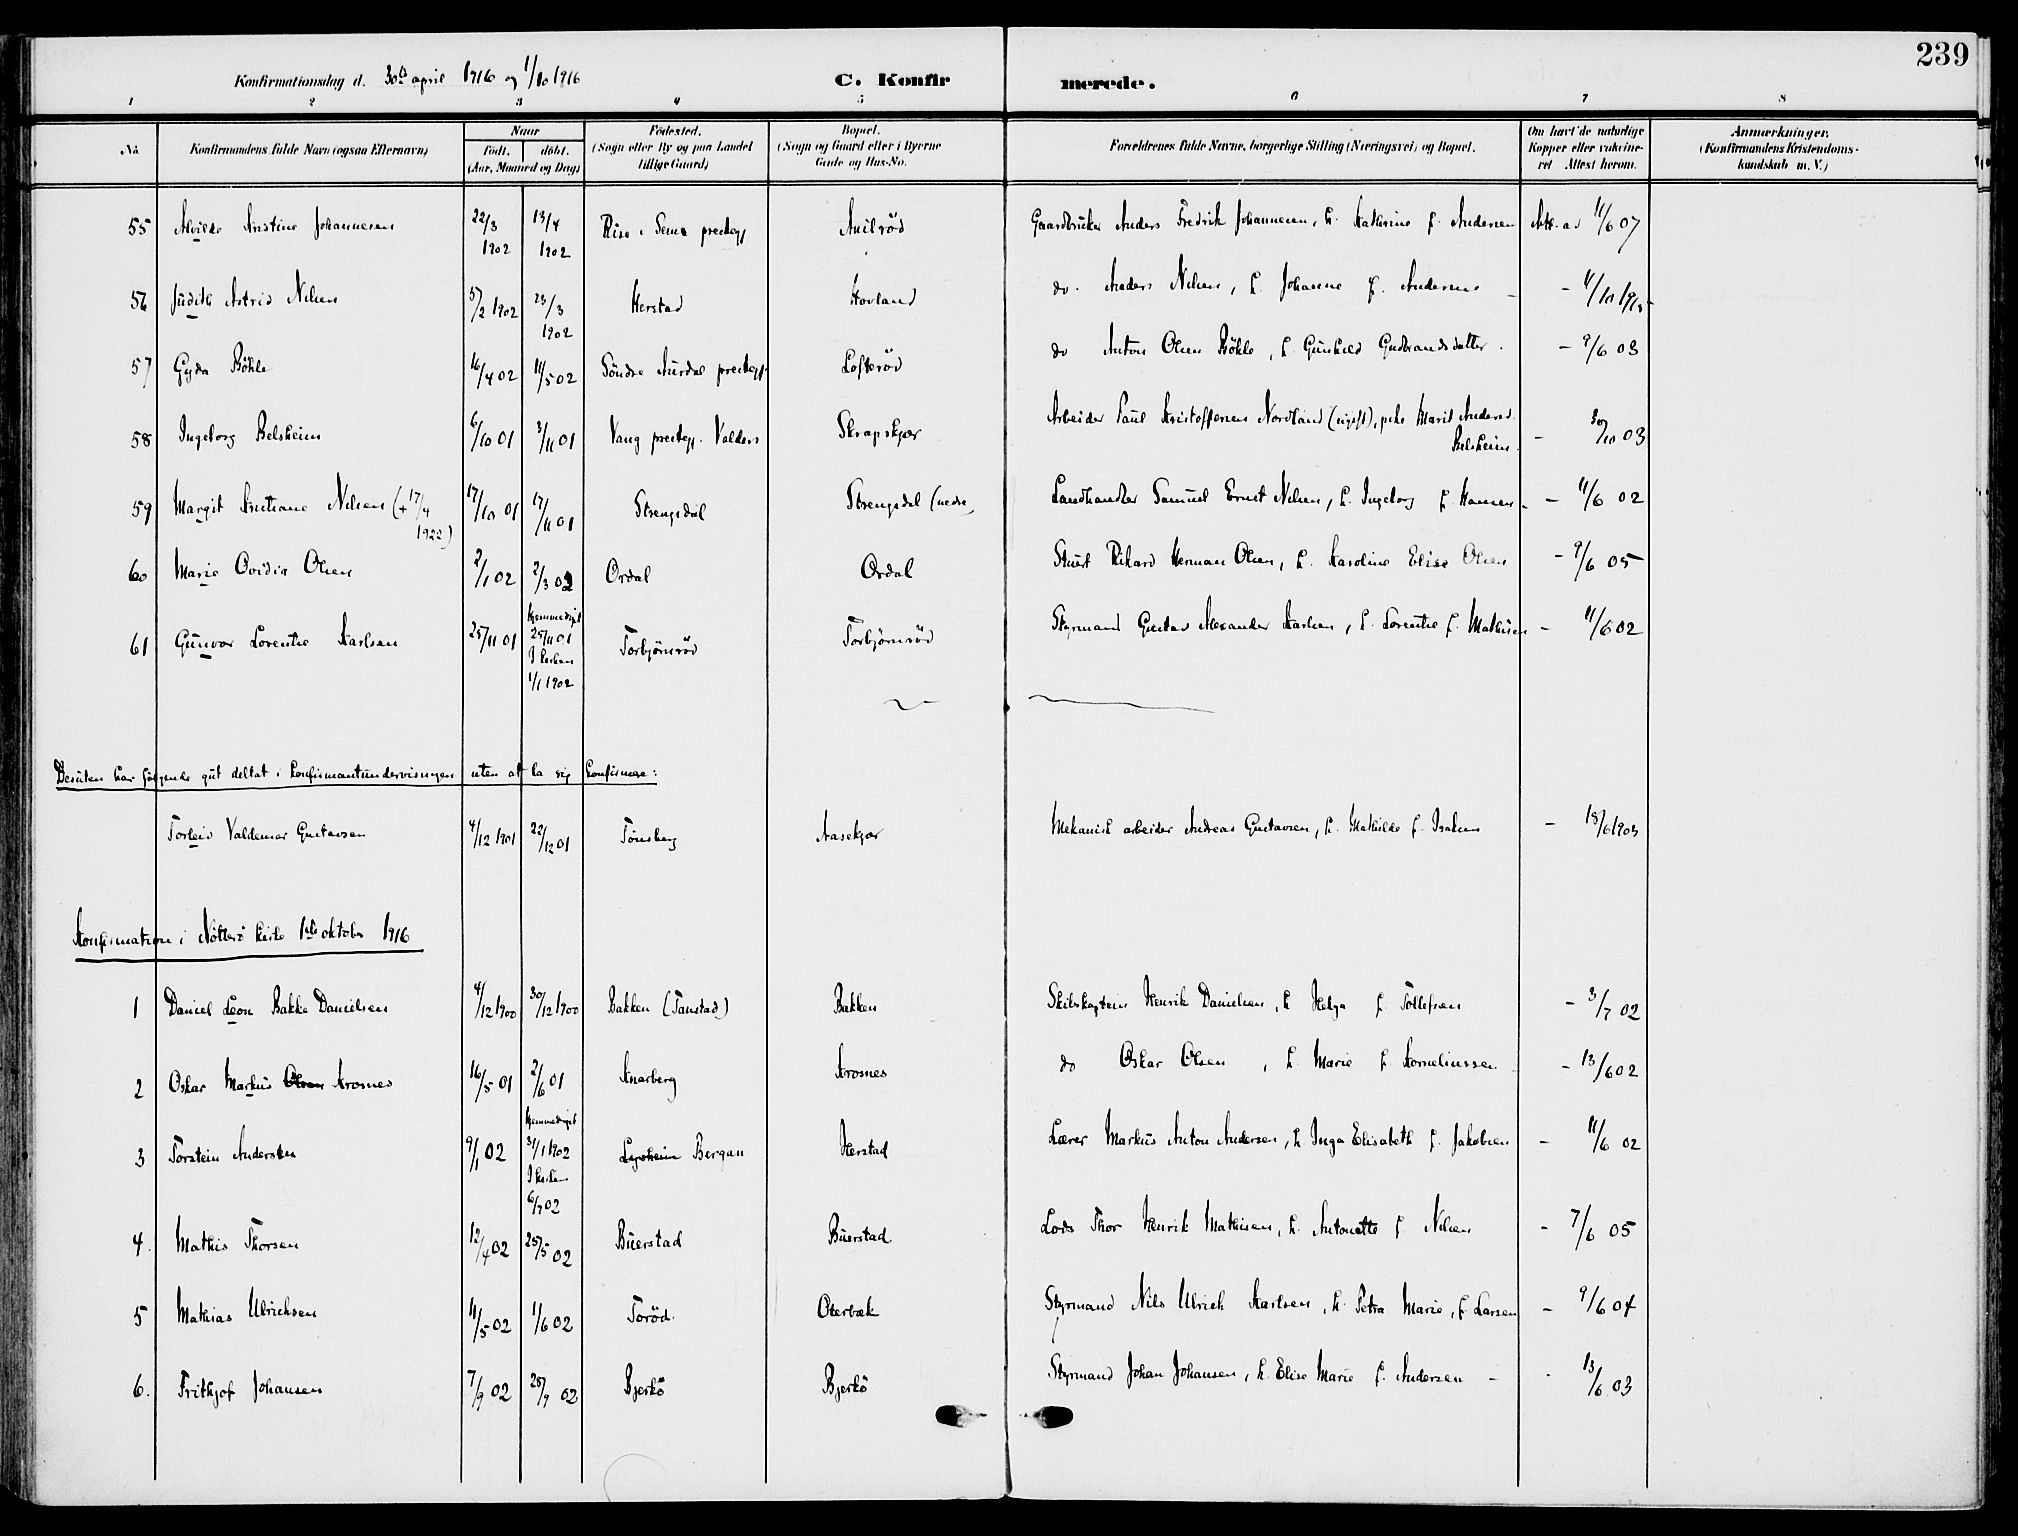 239
Konfirmationsdag d. 30te april 1916 og 1/10 1916 C. Konfir merede.
1 2 3 4 5 6 7 8
No. Konfirmandens fulde Navn (ogsaa Efternavn) Naar Födt. döbt. (Aar, Maaned og Dag) Födested. (Sogn eller By og paa Landet tillige Gaard) Bopæl. (Sogn og Gaard eller i Byerne Gade og Hus-No. Forældrenes fulde Navne, borgerlige Stilling (Næringsvei) og Bopæl. Om havt de naturlige Kopper eller vakcineret Attest herom. Anmærkninger. (Konfirmandens Kristendomskundskab m. V.)
55 Alvilde Kristine Johannesen 22/3 1902 13/4 1902 Rise i Sems prestegj Gaardbruker Anders Fredrik Johannesen, h. Kathrine f. Andersen Att. ad 11/6 07
56 Judith Astrid Nilsen 5/2 1902 23/3 1902 Herstad Hovland do. Anders Nilsen, h. Johanne f. Andersen
57 Gyda Böhle 16/4 02 11/5 02 Söndre Aurdal prestegj. Lofteröd do Anton Olsen Böhle, h. Gunhild Gudbrandsdatter. - 9/6 03
58 Ingeborg Belsheim 6/10 01 3/11 01 Vang prestegj. Valders Skrapskjær Arbeider Paul Kristoffersen Nordland (ugift), pike Marit Andersd. Belsheim. - 30/10 03
59 Margit Kristiane Nilsen (+ 17/4 1922) 17/10 01 17/11 01 Strengsdal Strengsdal (nedre) Landhandler Samuel Ernst Nilsen, h. Ingeborg f. Hansen - 11/6 02
60 Marie Ovidia Olsen 2/1 02 2/3 02 Ordal Ordal Stuert Rikard Herman Olsen, h. Karoline Elise Olsen - 9/6 05
61 Gunvor Lorentse Karlsen 25/11 01 Hjemmedöpt 25/11 01 I kirken 1/1 1902 Torbjörnröd Torbjörnröd Styrmand Gustav Alexander Karlsen, h. Lorentse f. Mathisen - 11/6 02
Desuten har fölgende gut deltat i konfirmantundervisningen uten at la sig konfirmere:
Torleiv Valdemar Gustavsen 4/12 1901 22/12 01 Tönsberg Aasekjær Mekanisk arbeider Andreas Gustavsen, h. Mathilde f. Isaksen - 18/6 1903
Konfirmation i Nötterö kirke 1ste oktober 1916
1 Daniel Leon Bakke Danielsen 4/12 1900 30/12 1900 Bakken (Tanstad) Bakken Skibskaptein Henrik Danielsen, h Helga f. Tollefsen - 3/7 02
2 Oskar Markus Olsen Krosnes 16/5 01 2/6 01 Knarberg Krosnes do Oskar Olsen, h. Marie f. Korneliussen - 13/6 02
3 Torstein Andersen 9/1 02 Hjemmedöpt 31/1 1902 I kirken 6/7 02 Lysheim Bergan Herstad Lærer Markus Anton Andersen, h. Inga Elisabeth f. Jakobsen - 11/6 02
4. Mathis Thorsen 12/4 02 25/5 02 Buerstad Buerstad Lods Thor Henrik Mathisen, h. Antonette f Nilsen - 7/6 05
5 Mathias Ulrichsen 11/5 02 1/6 02 Toröd. Oterbæk Styrmand Nils Ulrich Karlsen, h. Petra Marie, f. Larsen - 9/6 04
6. Frithjof Johansen 7/9 02 28/9 02 Bjerkö Bjerkö Styrmand Johan Johansen, h. Elise Marie f. Andersen - 13/6 03